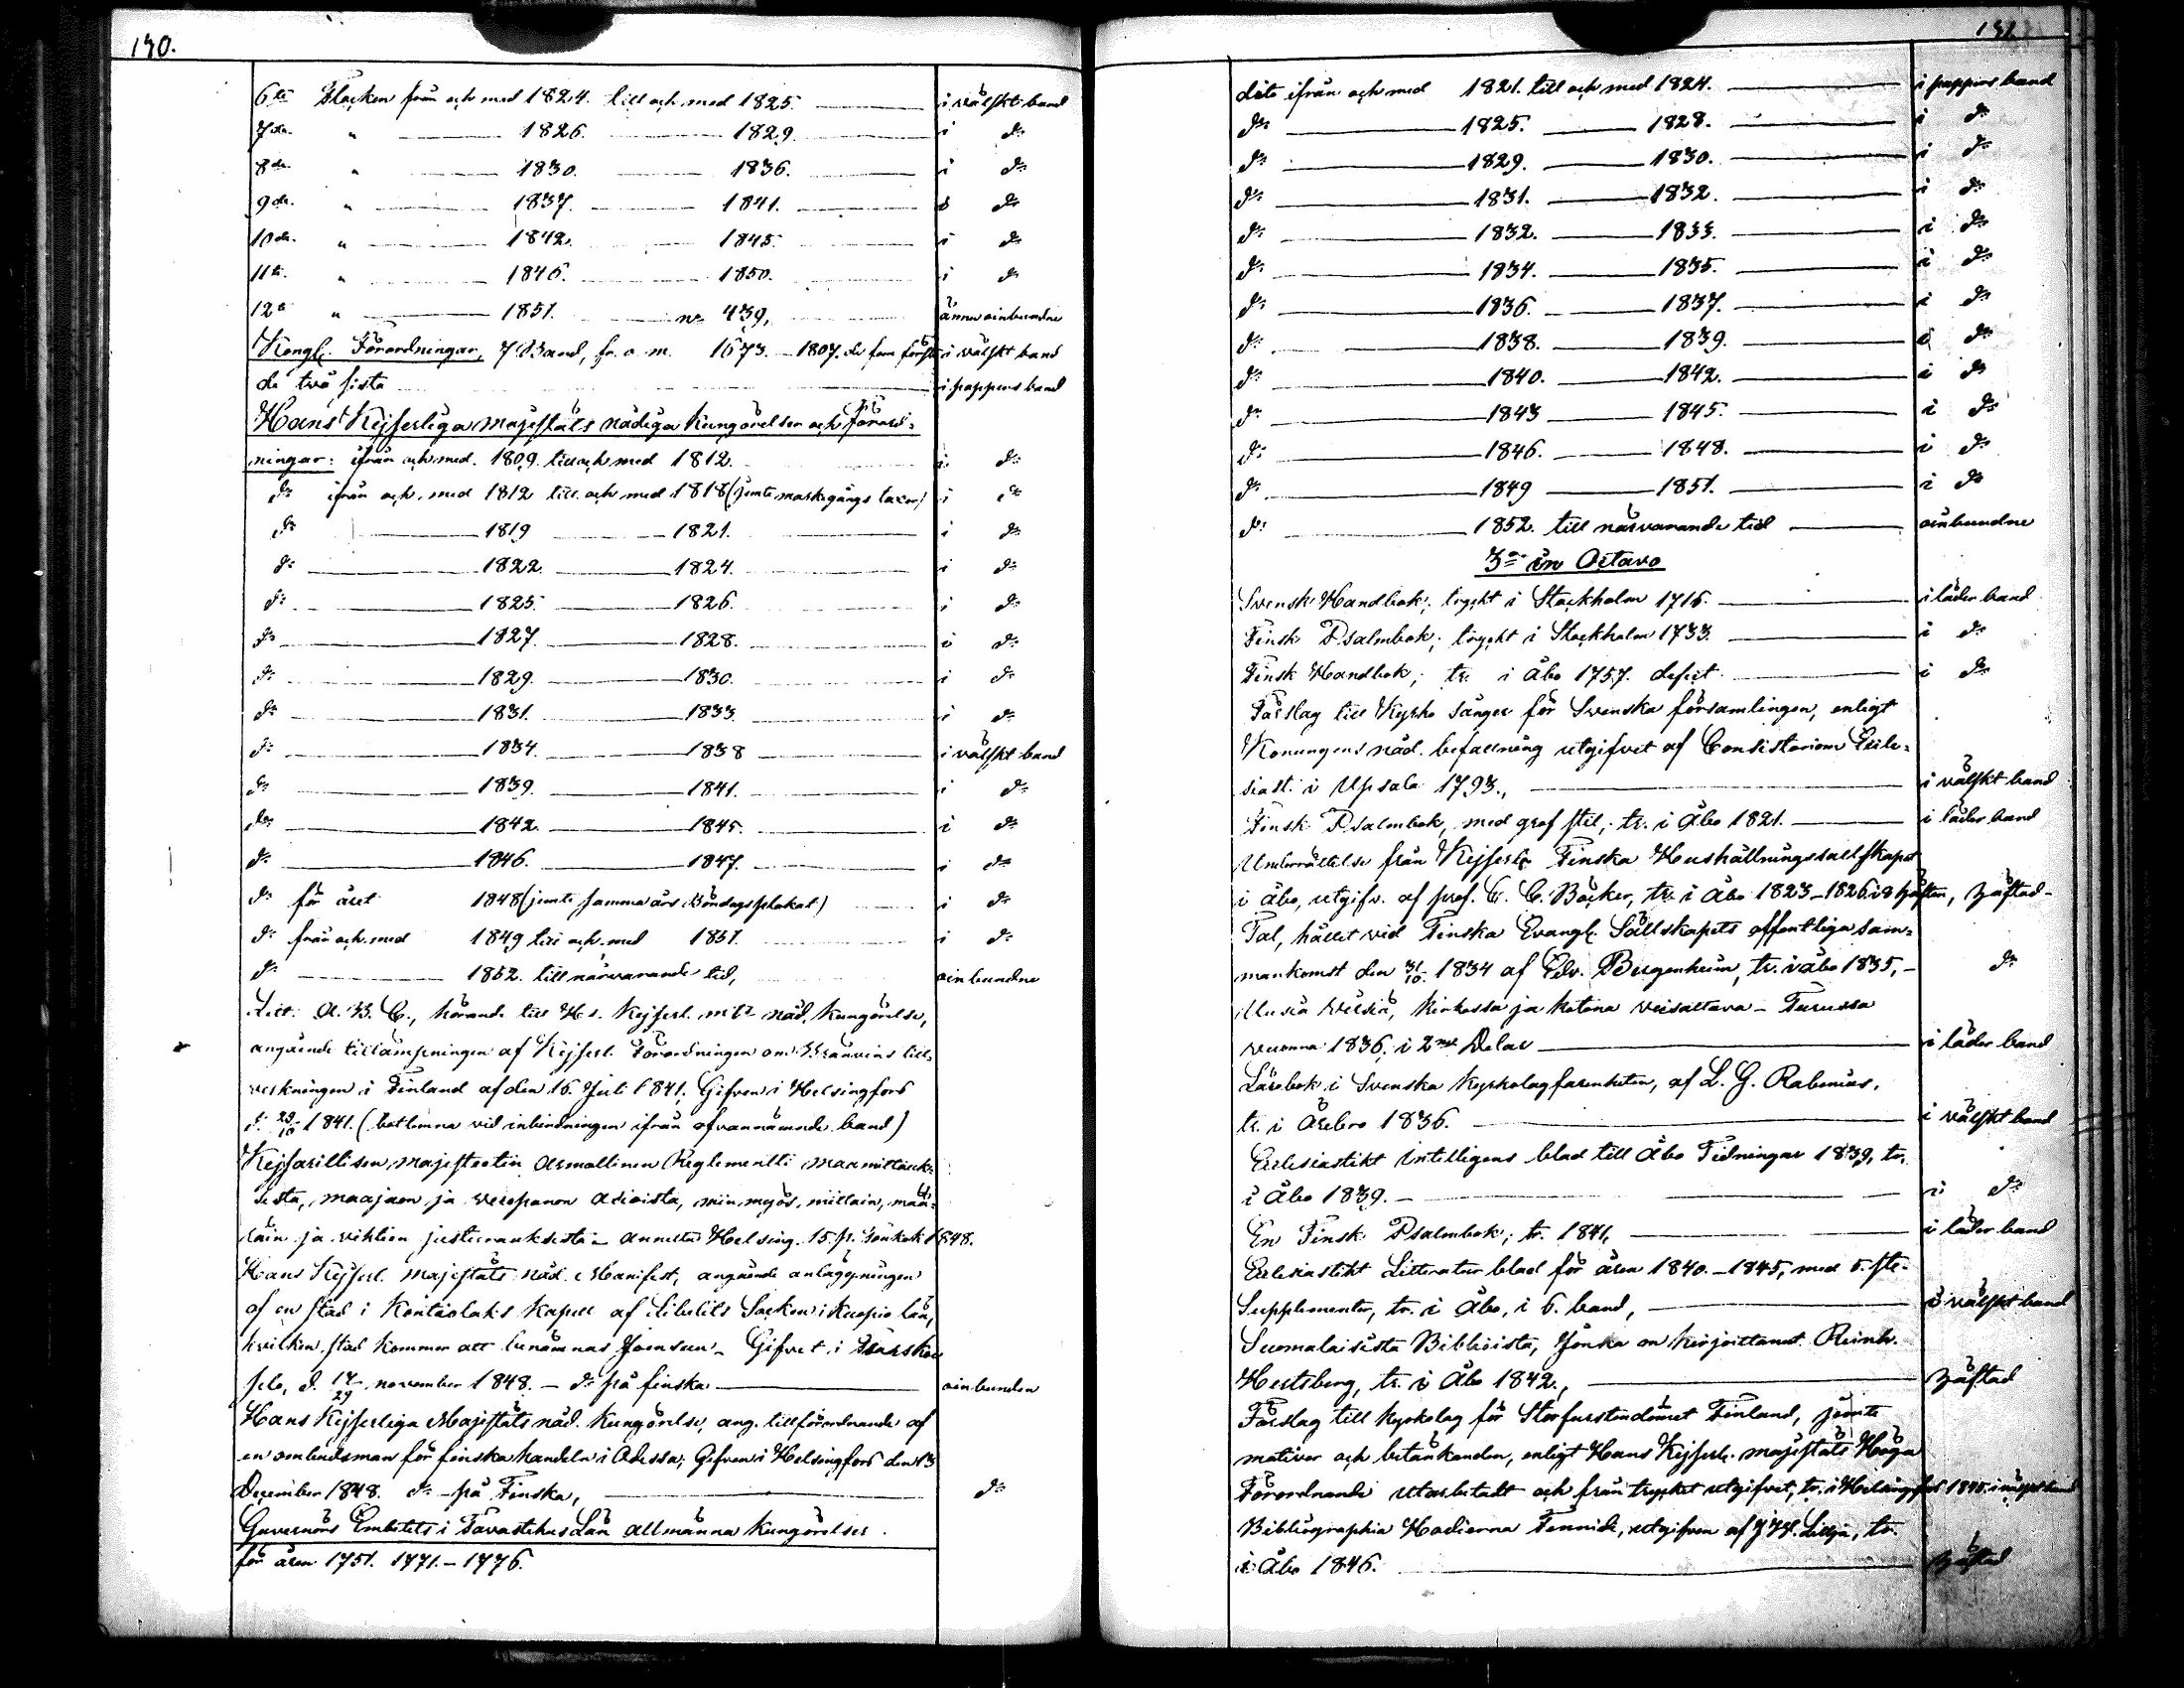 190.
6te Flocken från och med 1824. till och med 1825. i välskt band
7de " 1826. 1829. i do
8de " 1830. 1836. i do
9de " 1837. 1841. i do
10de " 1842. 1845. i do
11te " 1846. 1850. i do
12te " 1851. no 439, ännu oinbundne
Kongl. Förordningar, 7 Band, fr. o. m. 1673.–1807. de fem första i välskt band
de två sista i pappers band
Hans Kejserliga Majestäts nådiga Kungörelser och förord-
ningar: ifrån och med 1809. till och med 1812. i do
do ifrån och med 1812 till och med 1818 (jemte markegångs taxor) i do
do 1819 1821. i do
do 1822. 1824. i do
do 1825. 1826. i do
do 1827. 1828. i do
do 1829. 1830. i do
do 1831. 1833. i do
do 1834. 1838 i välskt band
do 1839. 1841. i do
do 1842. 1845. i do
do 1846. 1847. i do
do för året 1848 (jemte samma års Böndagsplakat) i do
do från och med 1849 till och med 1851. i do
do 1852. till närvarande tid, oinbundne
Litt. A. B. C., hörande till H. Kejserl. Mts nåd. Kungörelse,
angående tillämpningen af Kejserl. Förordningen om Bränvins till-
verkningen i Finland af den 16. Juli 1841; Gifven i Helsingfors
d. 29/10 1841. (bortlemna vid inbindningen ifrån ofvannämnde band)
Keisarillisen Majesteetin Armollinen Reglementti maamittauk-
sesta, maajaon ja veropanon asioista, niin myös mittain, määr-
täin ja vihtien justeerauksesta – annettu Helsing. 15. p. 1848.
Hans Kejserl. Majestäts nåd. Manifest, angående anläggningen
af en stad i Kontiolaks Kapell af Libelits Socken i Kuopio län,
hvilken stad kommer att benämnas Joensuu – Gifvet i Zarskoe
Selo, d. 17/29 november 1848. – do på finska oinbunden
Hans Kejserliga Majestäts nåd. Kungörelse, ang. tillförordnande af
en ombudsman för finska handeln i Odessa; Gifven i Helsingfors den 13
December 1848. do på Finska, do
Guvernörs Embetets i Tavastehus Län allmänna Kungörelser
för åren 1751. 1771.–1776.
191.
dito ifrån och med 1821. till och med 1824. i pappers band
do 1825. 1828. i do
do 1829. 1830. i do
do 1831. 1832. i do
do 1832. 1833. i do
do 1834. 1835. i do
do 1836. 1837. i do
do 1838. 1839. i do
do 1840. 1842. i do
do 1843 1845. i do
do 1846. 1848. i do
do 1849 1851. i do
do 1852. till närvarande tid oinbundne
3o in Octavo
Svensk Handbok; tryckt i Stockholm 1716. i läder band
Finsk Psalmbok; tryckt i Stockholm 1733. i do
Finsk Handbok; tr. i Åbo 1757. defect i do
Förslag till Kyrko Sånger för Svenska församlingen, enligt
Konungens nåd. befallning utgifvet af Consistorium Eccle-
siast. i Upsala 1793., i välskt band
Finsk Psalmbok, med grof stil; tr. i Åbo 1821. i läder band
Underrättelser från Kejserl. Finska Hushållningssällskapet
i Åbo, utgifv. af prof. C. C. Böcker, tr. i Åbo 1823–1826. i 8 häften, häftad
Tal, hållet vid Finska Evangl. Sällskapets offentliga sam-
mankomst den 31/10 1834 af Edv. Bergenheim, tr. i Åbo 1835, do
Uusia Virsiä, Kirkossa ja Kotona veisattava – Turussa
vuonna 1836, i 2ne Delar i läder band
Lärobok i Svenska Kyrkolagfarenheten, af L. G. Rabenius,
tr. i Örebro 1836. i välskt band
Ecclesiastikt Intelligens blad till Åbo Tidningar 1839, tr.
i Åbo 1839. i do
En Finsk Psalmbok; tr. 1841, i läder band
Ecclesiastikt Litteratur blad för åren 1840.–1845, med 5. st.
Supplementer, tr. i Åbo, i 6. band, i välskt band
Suomalaisista Biblioista, Jonka on kirjoittanut Reinh.
Hertsberg, tr. i Åbo 1842., häftad
Förslag till Kyrkolag för Storfurstendömet Finland, jemte
motiver och betänkanden, enligt Hans Kejserl. Majestäts Höga
Förordnande utarbetadt och från trycket utgifvet, tr. i Helsingfors 1845. i välskt band
Bibliographia Hodierna Fennica, utgifven af J. W. Lillja, tr.
i Åbo 1846. häftad